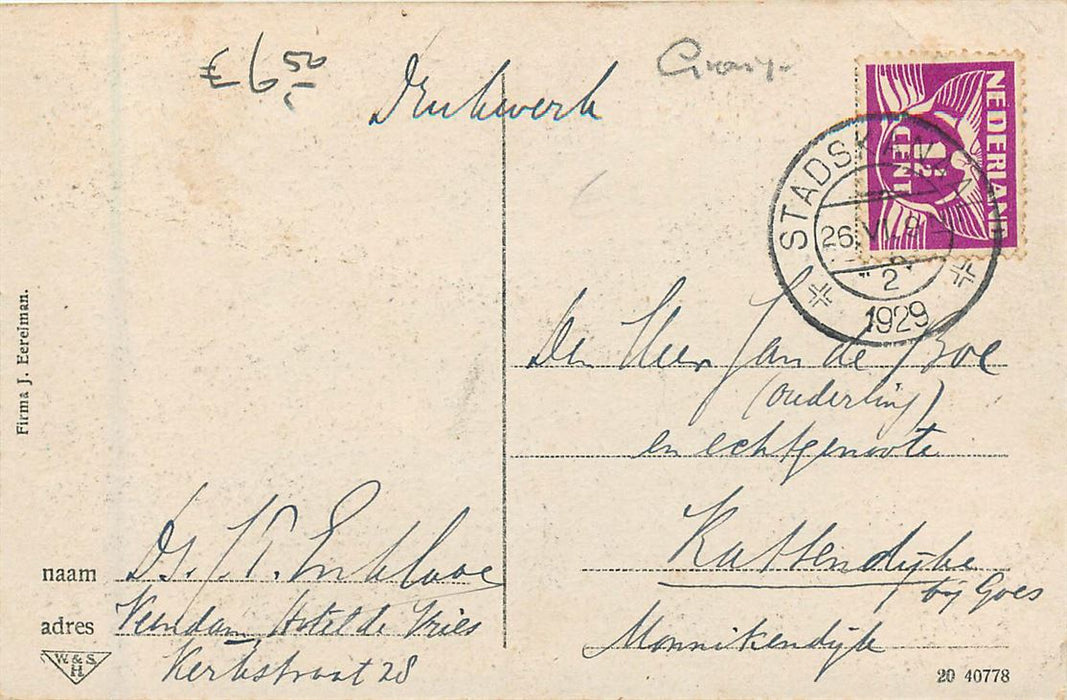 £ 6 50
Drukwerk
NEDERLAND
1½
CENT
STADSKANAAL
26.VI.9
2
1929
Firma J. Eerelman.
Den Heer Jan de Boe
(ouderling)
en echtgenoote
Kattendijke
bij Goes
Monnikendijk
naam Ds. J.
adres Veendam, Hotel de Vries
Kerkstraat 28
W. & S.
H
20 40778